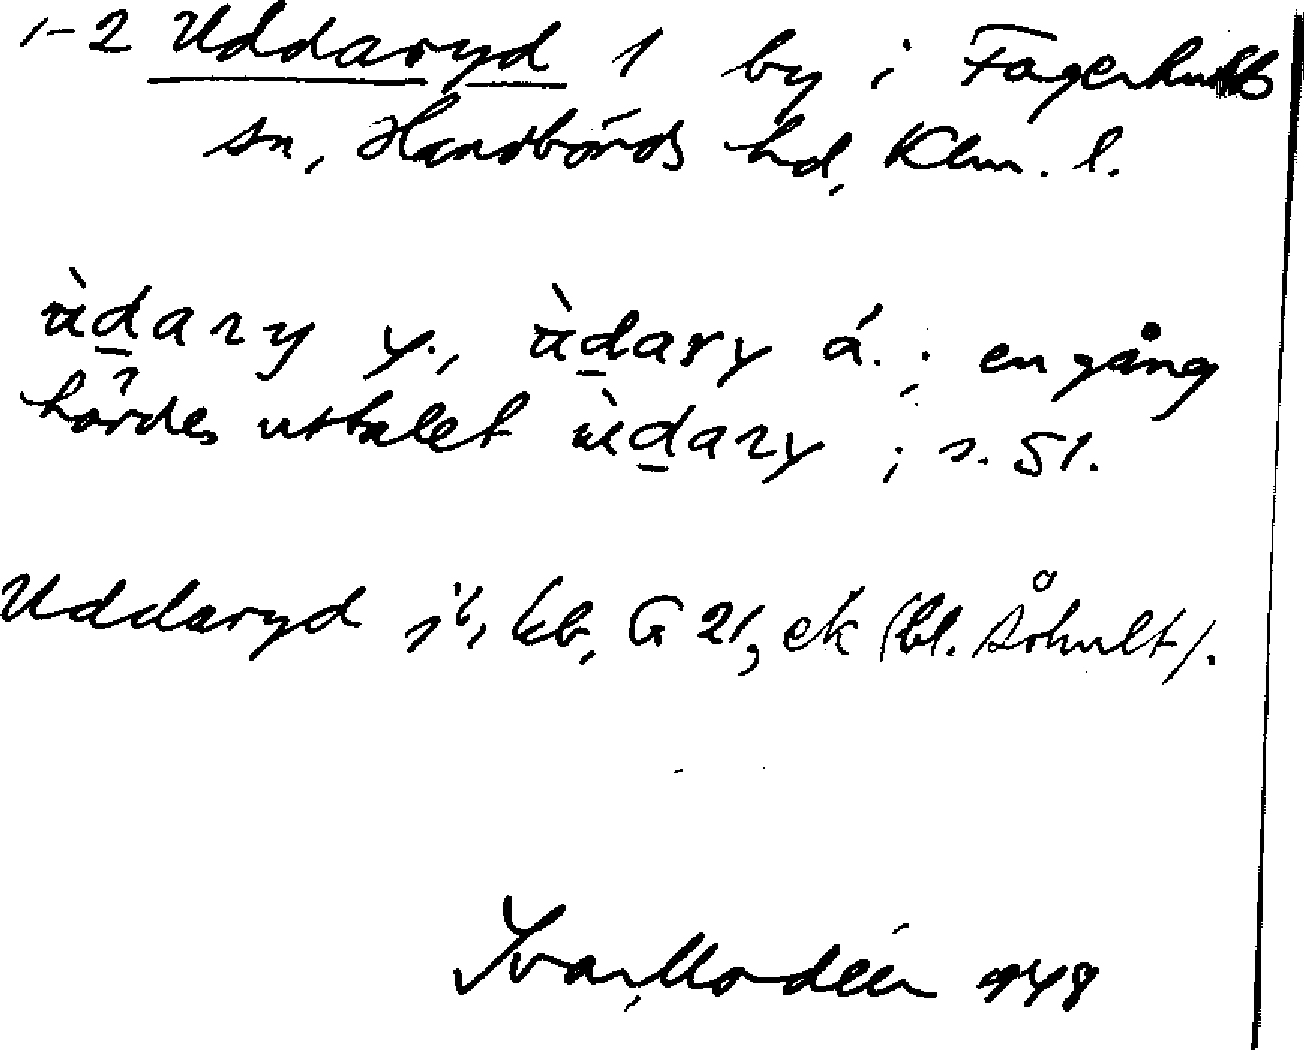 1-2 Uddaryd 1 by i Fagerhults
sn, Handbörds hd, Klm. l.
ùdary y., ùdary ä. ; en gång
hördes uttalet ùdary ; s. 51.
Uddaryd jb, kb, G 21, ek (bl. Århult).
Ivar Modéer 1948